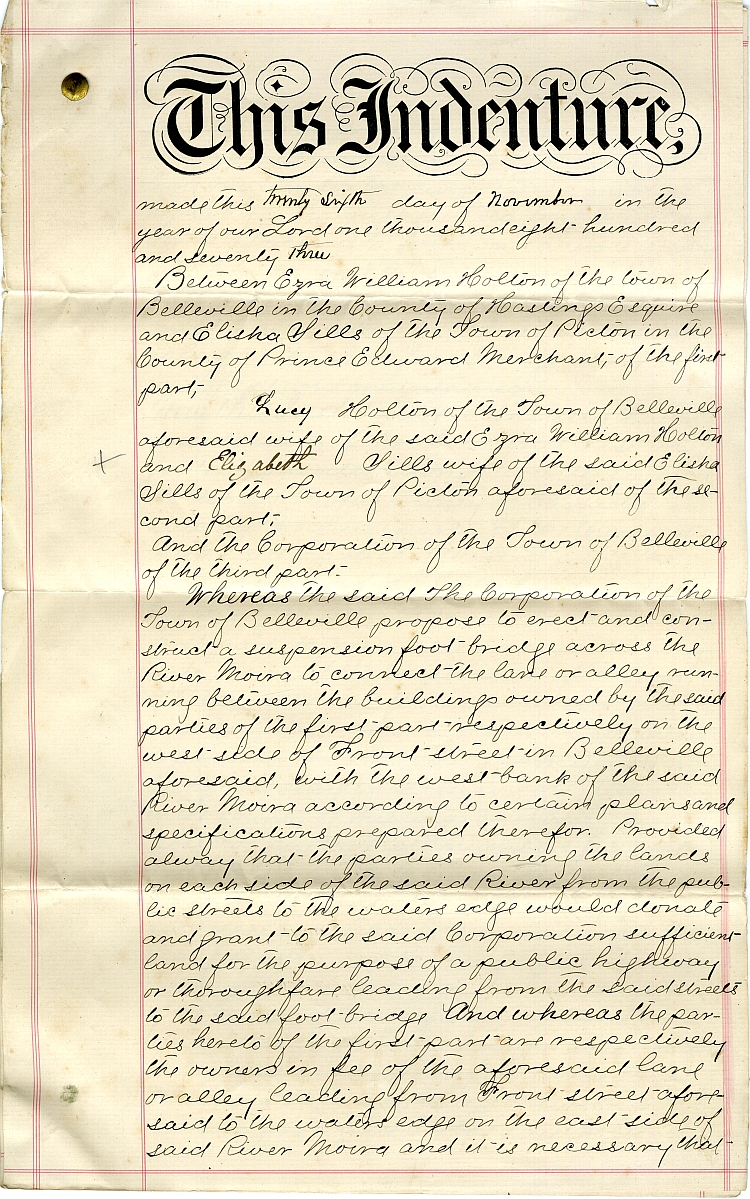 This Indenture,
made this twenty sixth day of November in the
year of our Lord one thousand eight hundred
and seventy three
Between Ezra William Holton of the town of
Belleville in the County of Hastings Esquire
and Elisha Sills of the Town of Picton in the
County of Prince Edward Merchant, of the first
part,
Lucy Holton of the Town of Belleville
aforesaid wife of the said Ezra William Holton
+ and Elizabeth Sills wife of the said Elisha
Sills of the Town of Picton aforesaid of the se-
cond part;
And the Corporation of the Town of Belleville
of the third part.
Whereas the said The Corporation of the
Town of Belleville propose to erect and con-
struct a suspension foot bridge across the
River Moira to connect the lane or alley run-
ning between the buildings owned by the said
parties of the first part respectively on the
west side of Front street in Belleville
aforesaid, with the west bank of the said
River Moira according to certain plans and
specifications prepared therefor. Provided
alway that the parties owning the lands
on each side of the said River from the pub-
lic streets to the waters edge would donate
and grant to the said Corporation sufficient
land for the purpose of a public highway
or thoroughfare leading from the said streets
to the said foot bridge And whereas the par-
ties hereto of the first part are respectively
the owners in fee of the aforesaid lane
or alley leading from Front street afore-
said to the waters edge on the east side of
said River Moira and it is necessary that